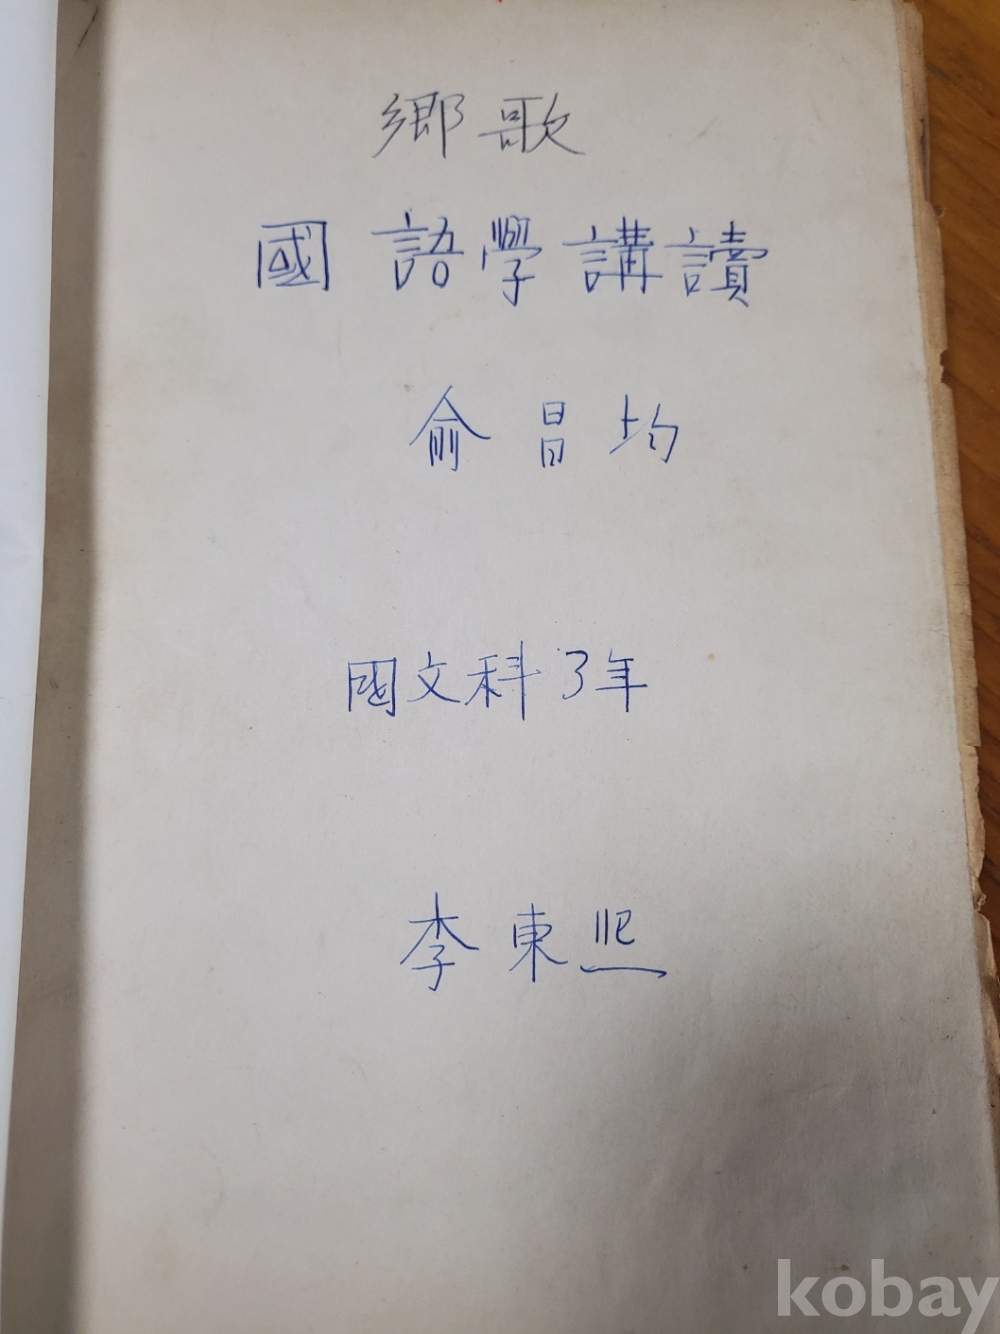 鄕歌
國語學講讀
兪昌均
國文科3年
李東熙
kobay